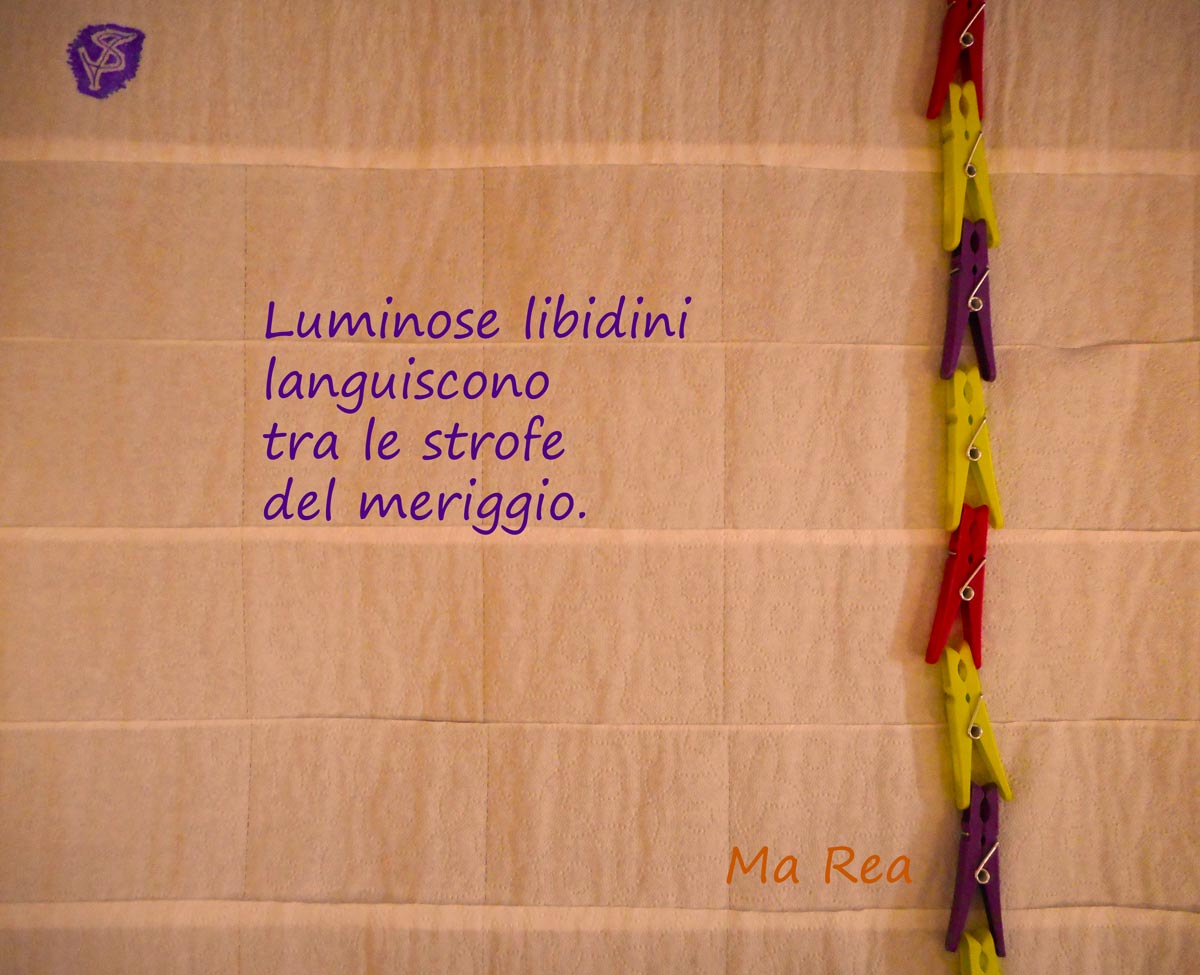 Luminose libidini
languiscono
tra le strofe
del meriggio.
Ma Rea